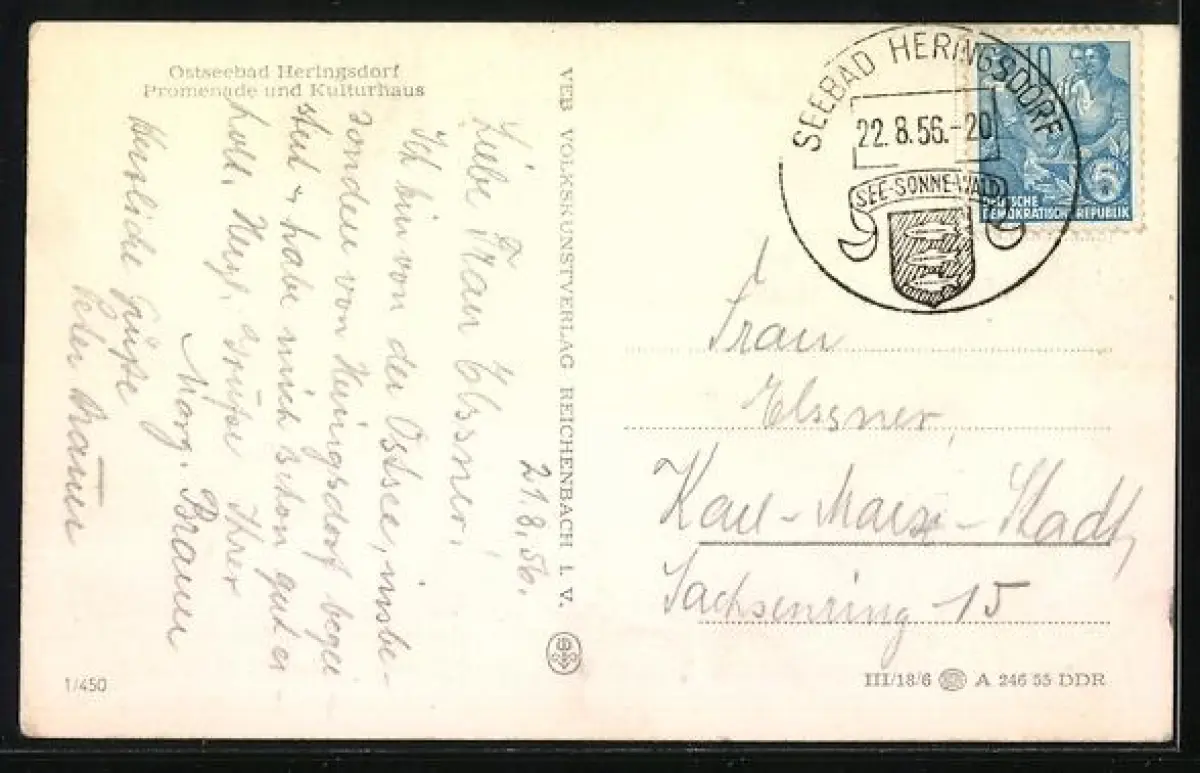 Ostseebad Heringsdorf
Promenade und Kulturhaus
21.8.56.
Liebe Frau Elssner,
Ich bin von der Ostsee, insbe-
sondere von Heringsdorf begei-
stert u habe mich schon gut er-
holt. Herzl. Grüße Ihrer
Marg. Brauer
Herzliche Grüße
Peter Brauer
VEB VOLKSKUNSTVERLAG REICHENBACH I. V.
1/450
SEEBAD HERINGSDORF
22.8.56.-20
SEE-SONNE-WALD
10
5
DEUTSCHE
DEMOKRATISCHE REPUBLIK
Frau
Elssner,
Karl-Marx-Stadt,
Sachsenring 15
III/18/6 A 246 55 DDR